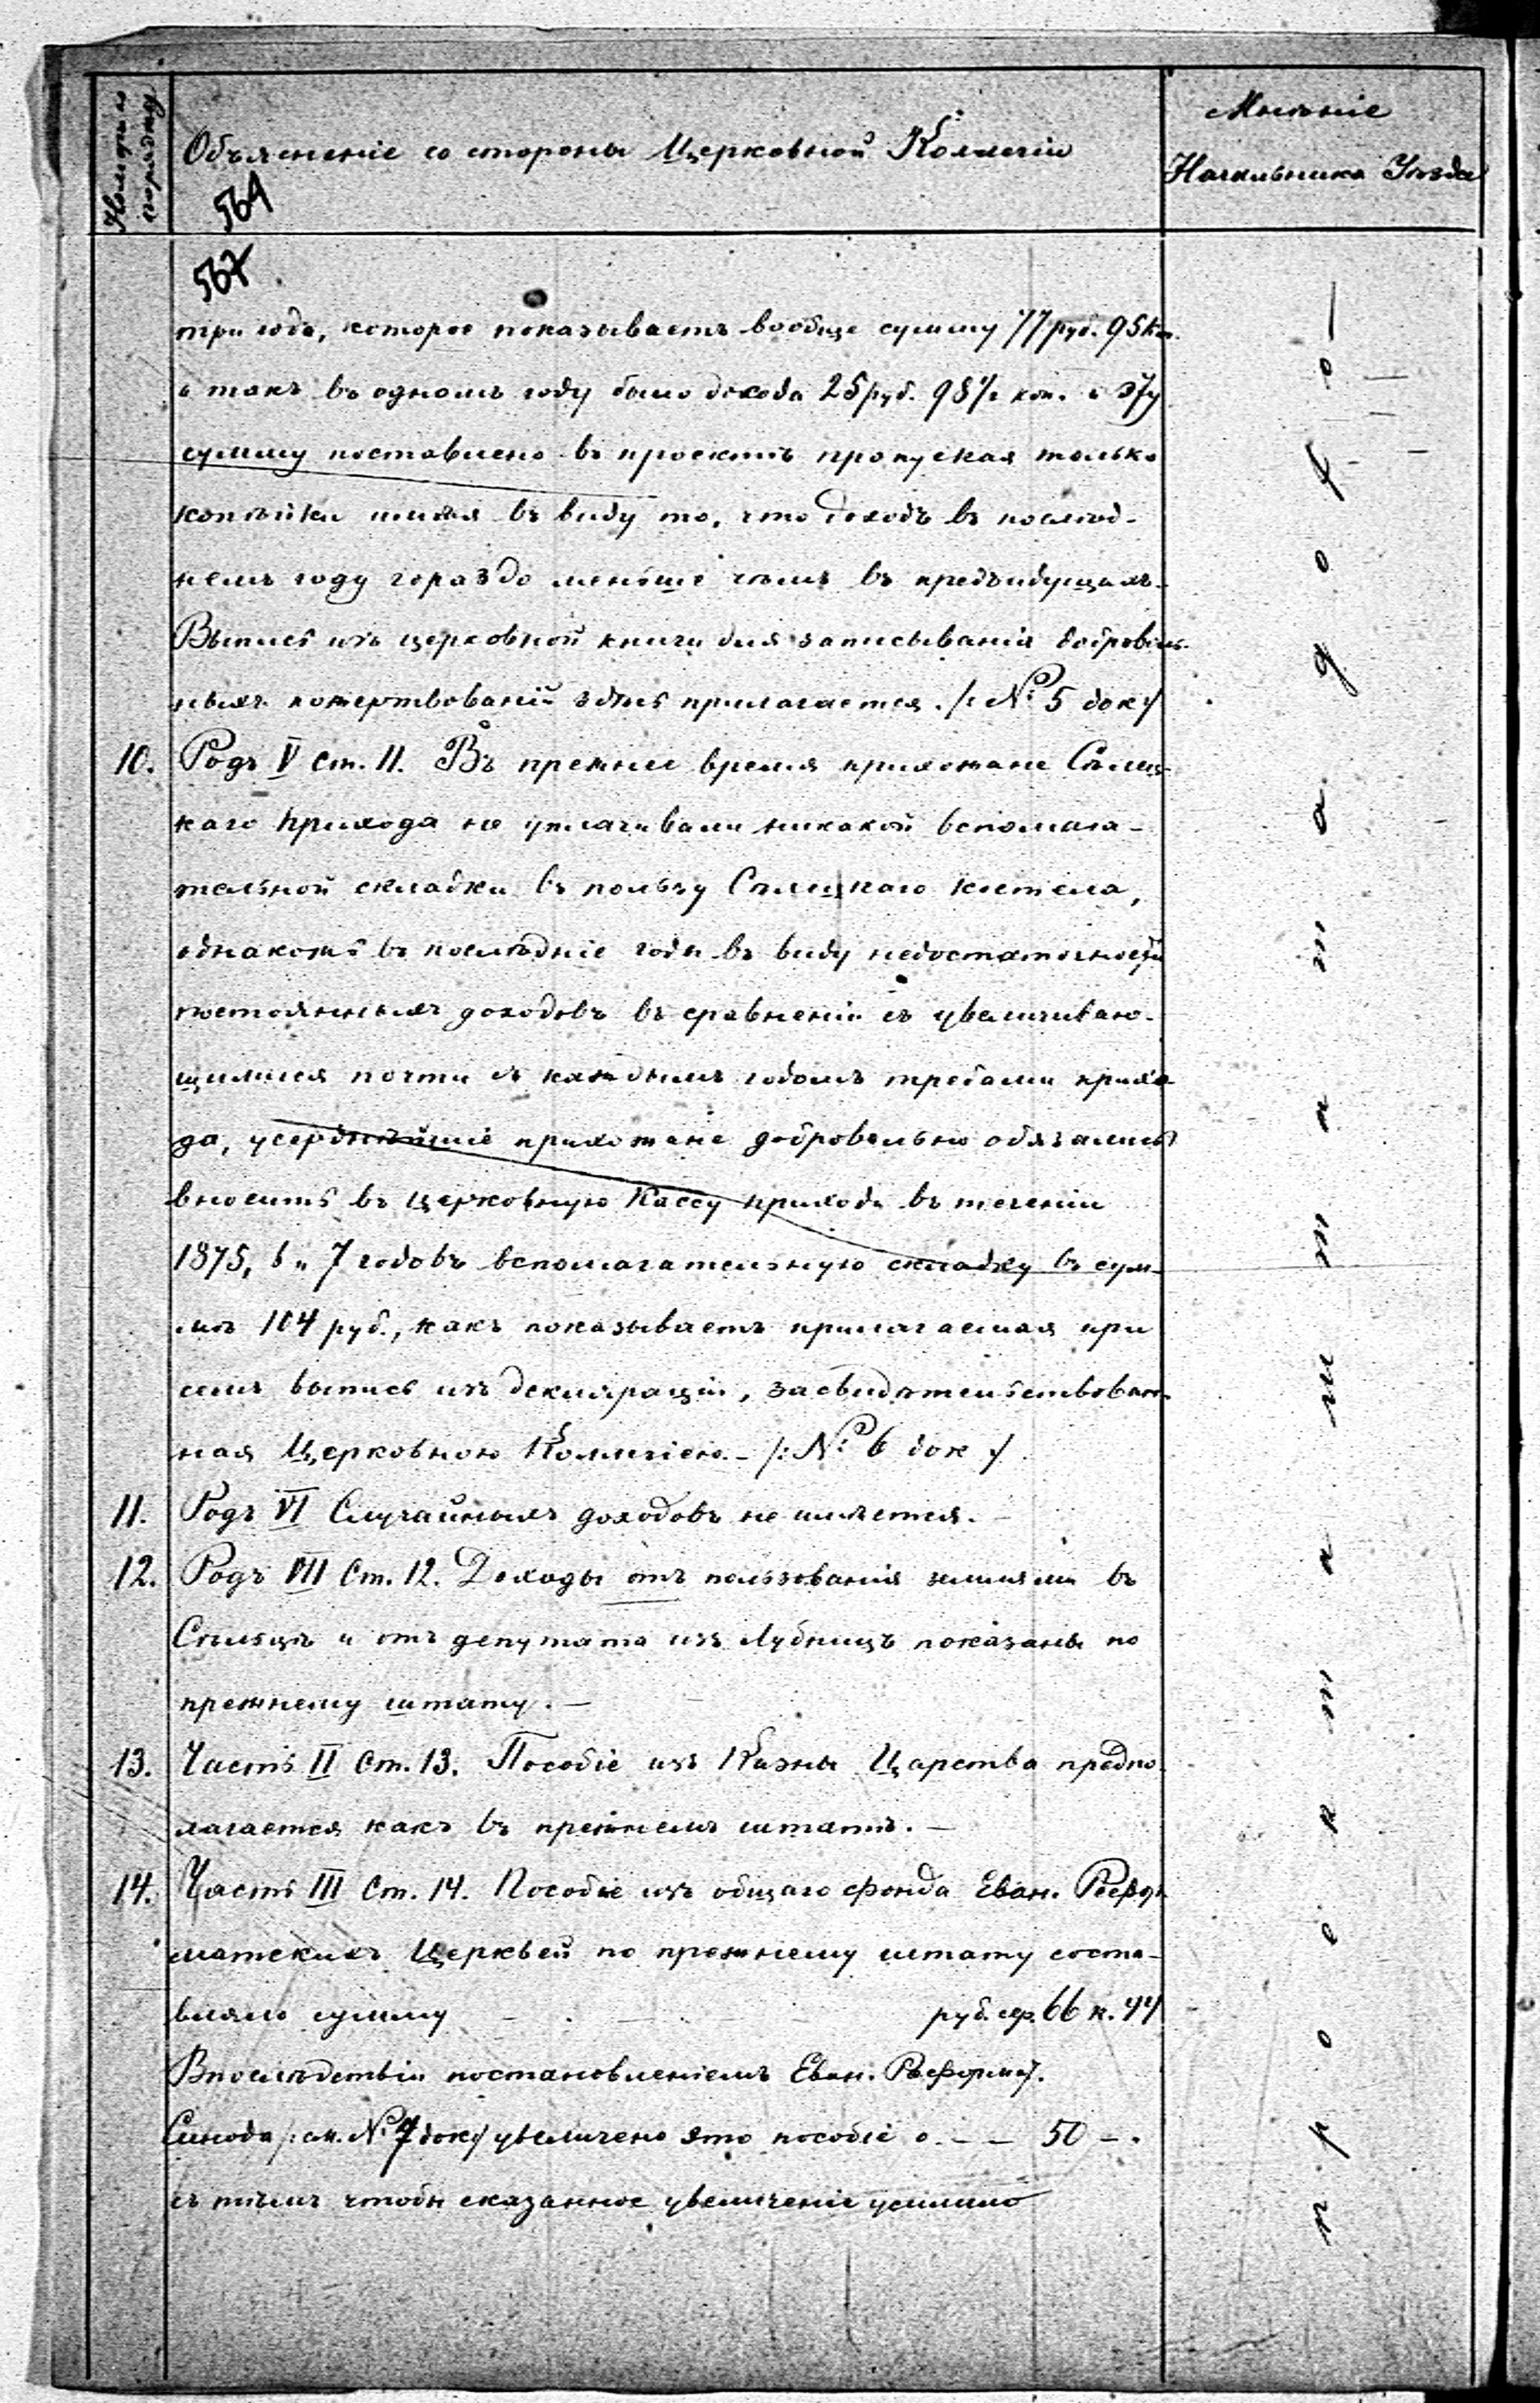 Нумера по
порядку
Объясненіе со стороны Церковной Коллегіи
Мнѣніе
Начальника Уѣзда
564
567
три года, которое показываетъ вообще сумму 77 руб. 95 коп.
и такъ въ одномъ году было дохода 25 руб. 98 1/2 коп. и эту
сумму поставлено въ проектѣ пропуская только
копѣйки имѣя въ виду то, что доходъ въ послѣд-
немъ году гораздо меньше чѣмъ въ предъидущихъ.
Выпись изъ церковной книги для записыванія доброволь-
ныхъ пожертвованій здѣсь прилагается. /: № 5 док :/
10. Родъ V ст. 11. Въ прежнее время прихожане Сѣлец-
каго прихода не уплачивали никакой вспомога-
тельной складки въ пользу Сѣлецкаго костела,
однакожъ въ послѣдніе годы въ виду недостаточности
постоянныхъ доходовъ въ сравненіи съ увеличиваю-
щимися почти съ каждымъ годомъ требами прихо-
да, усерднѣйшіе прихожане добровольно обязались
вносить въ церковную Кассу прихода въ теченіи
1875, 6 и 7 годовъ вспомагательную складку въ сум-
мѣ 104 руб., какъ показываетъ прилагаемая при
семъ выпись изъ декляраціи, засвидѣтельствован-
ная Церковною Коллегіею. - /: № 6 док :/
11. Родъ VI Случайныхъ доходовъ не имѣется. -
12. Родъ VII Ст. 12. Доходы отъ пользованія землями въ
Сѣльцѣ и отъ депутата изъ Лубницъ показаны по
прежнему штату. -
13. Часть II Ст. 13. Пособіе изъ Казны Царства предпо-
лагается какъ въ прежнемъ штатѣ. -
14. Часть III Ст. 14. Пособіе изъ общаго фонда Еван. Рефор-
матскихъ Церквей по прежнему штату соста-
вляло сумму - - - руб. сер. 66 к. 44
Впослѣдствіи постановленіемъ Еван. Реформат.
Синода /: см. № 7 док :/ увеличено это пособіе о - - 50 - .
съ тѣмъ чтобы сказанное увеличеніе усилило